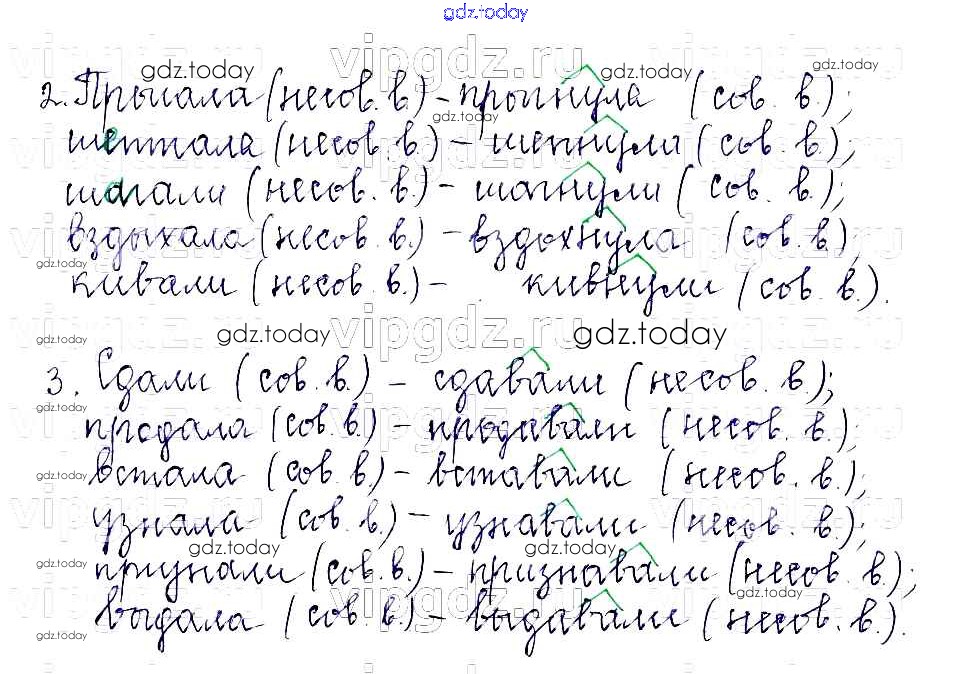 gdz.today
2. Прыгала (несов. в.) – прыгнула (сов. в.);
шептала (несов. в.) – шепнула (сов. в.);
шагали (несов. в.) – шагнули (сов. в.);
вздыхала (несов. в.) – вздохнула (сов. в.);
кивали (несов. в.) – кивнули (сов. в.).
3. Сдали (сов. в.) – сдавали (несов. в.);
продала (сов. в.) – продавали (несов. в.);
встала (сов. в.) – вставали (несов. в.);
узнала (сов. в.) – узнавали (несов. в.);
признали (сов. в.) – признавали (несов. в.);
выдала (сов. в.) – выдавали (несов. в.).